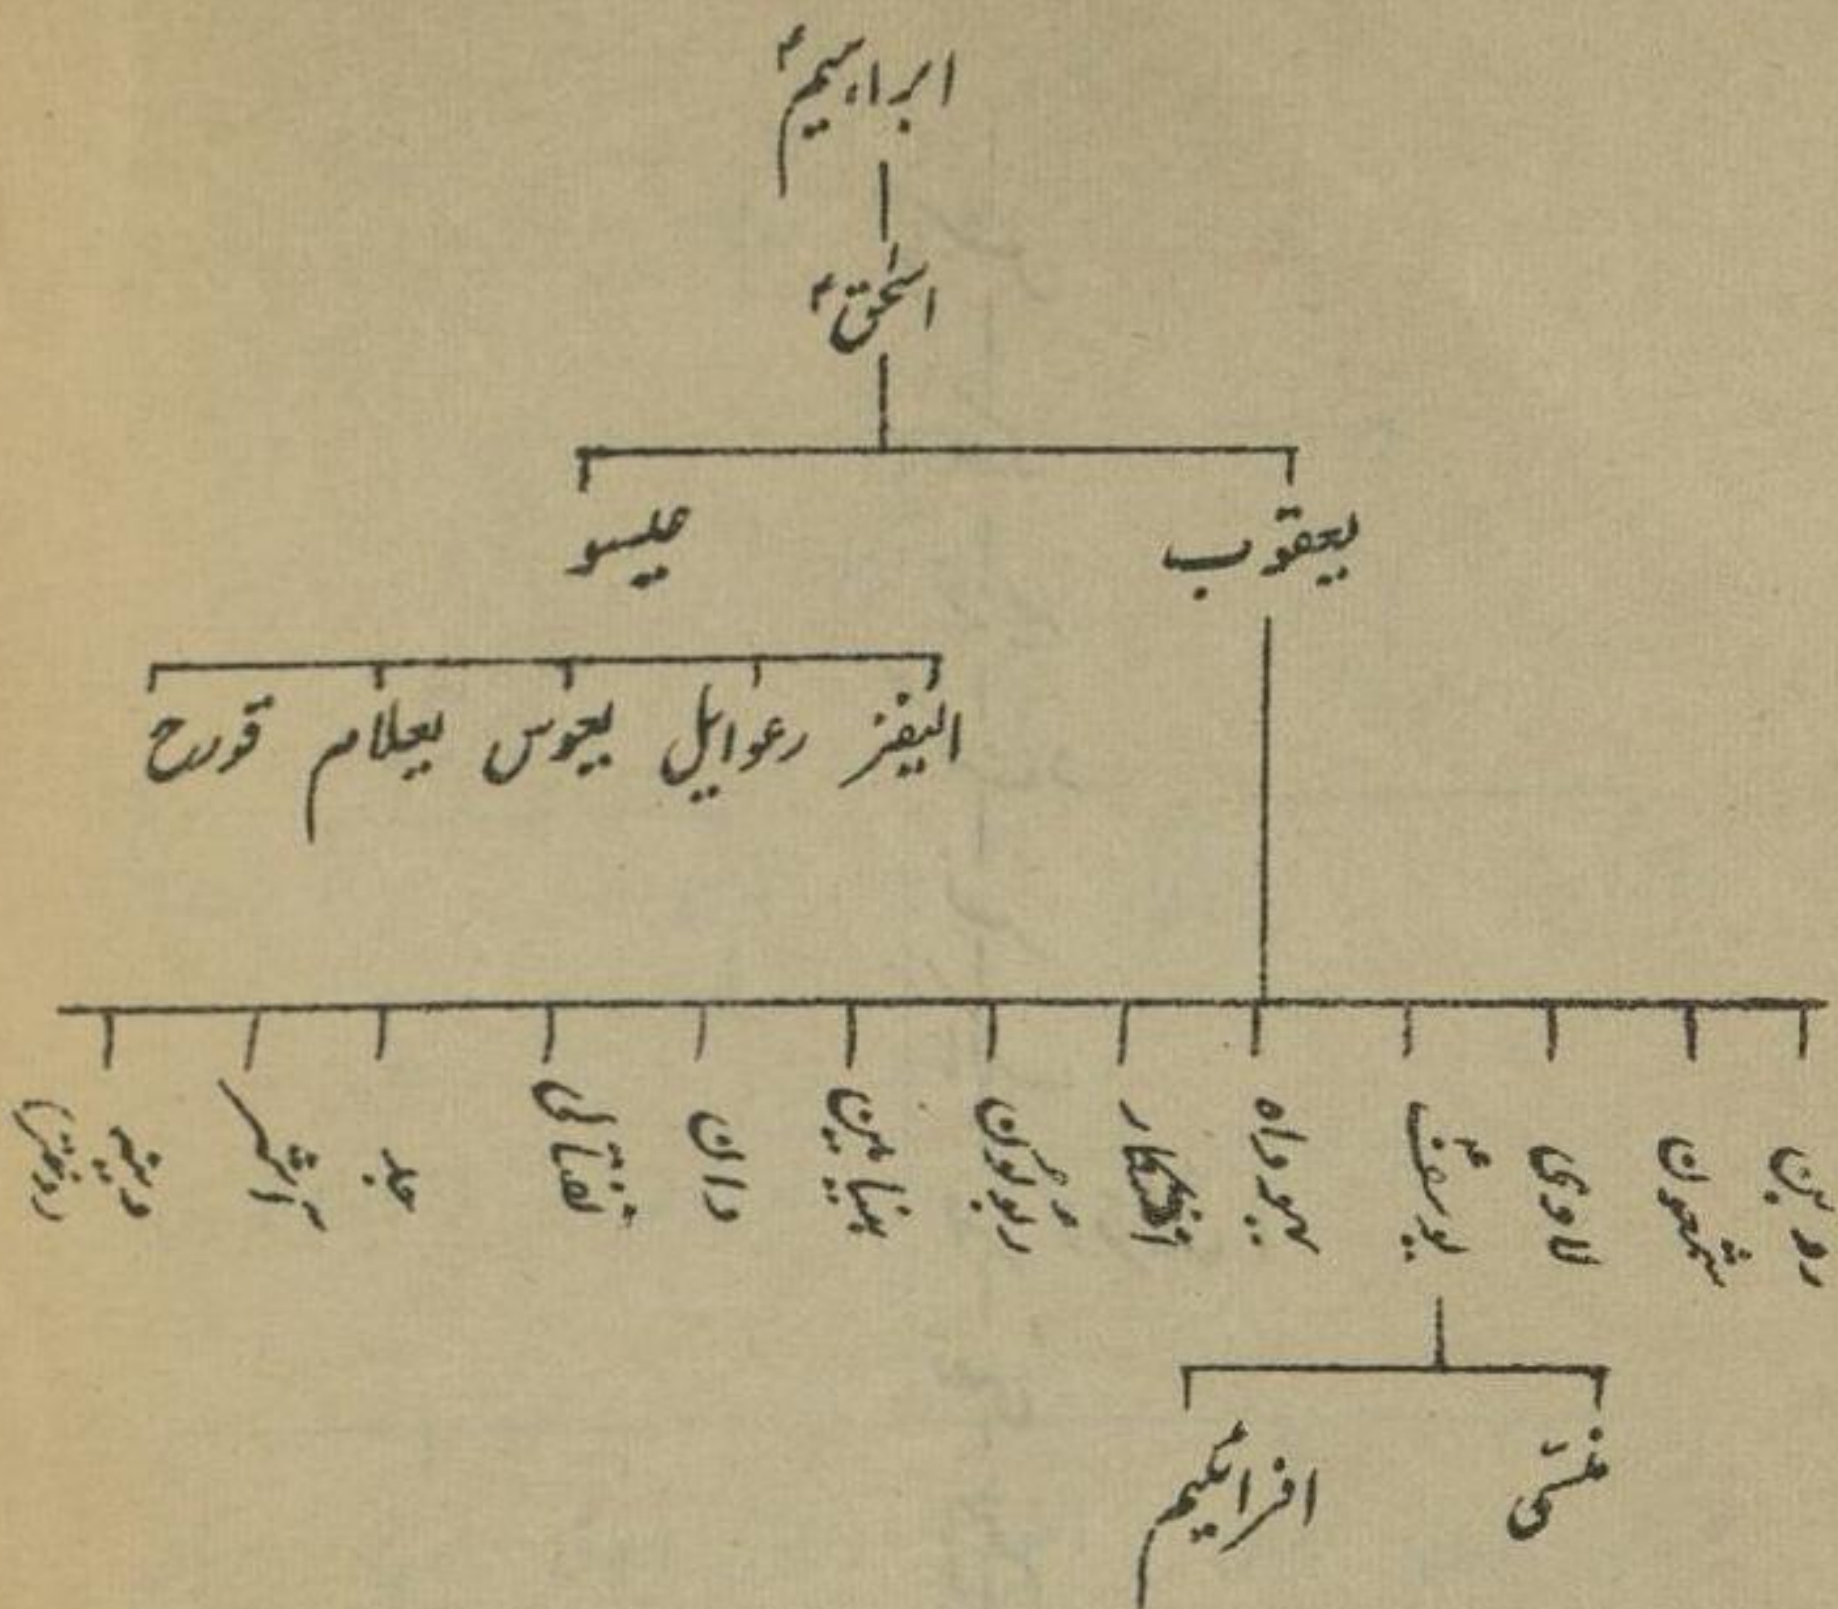 ابراہیمؑ
اسحٰقؑ
یعقوب عیسو
الیفز رعوایل یعوس یعلام قورح
روبن شمعون لاوی یوسفؑ یہوداہ زبولون بنیامین دان نفتالی جد آشر دینہ (دختر)
منسّی افرائیم